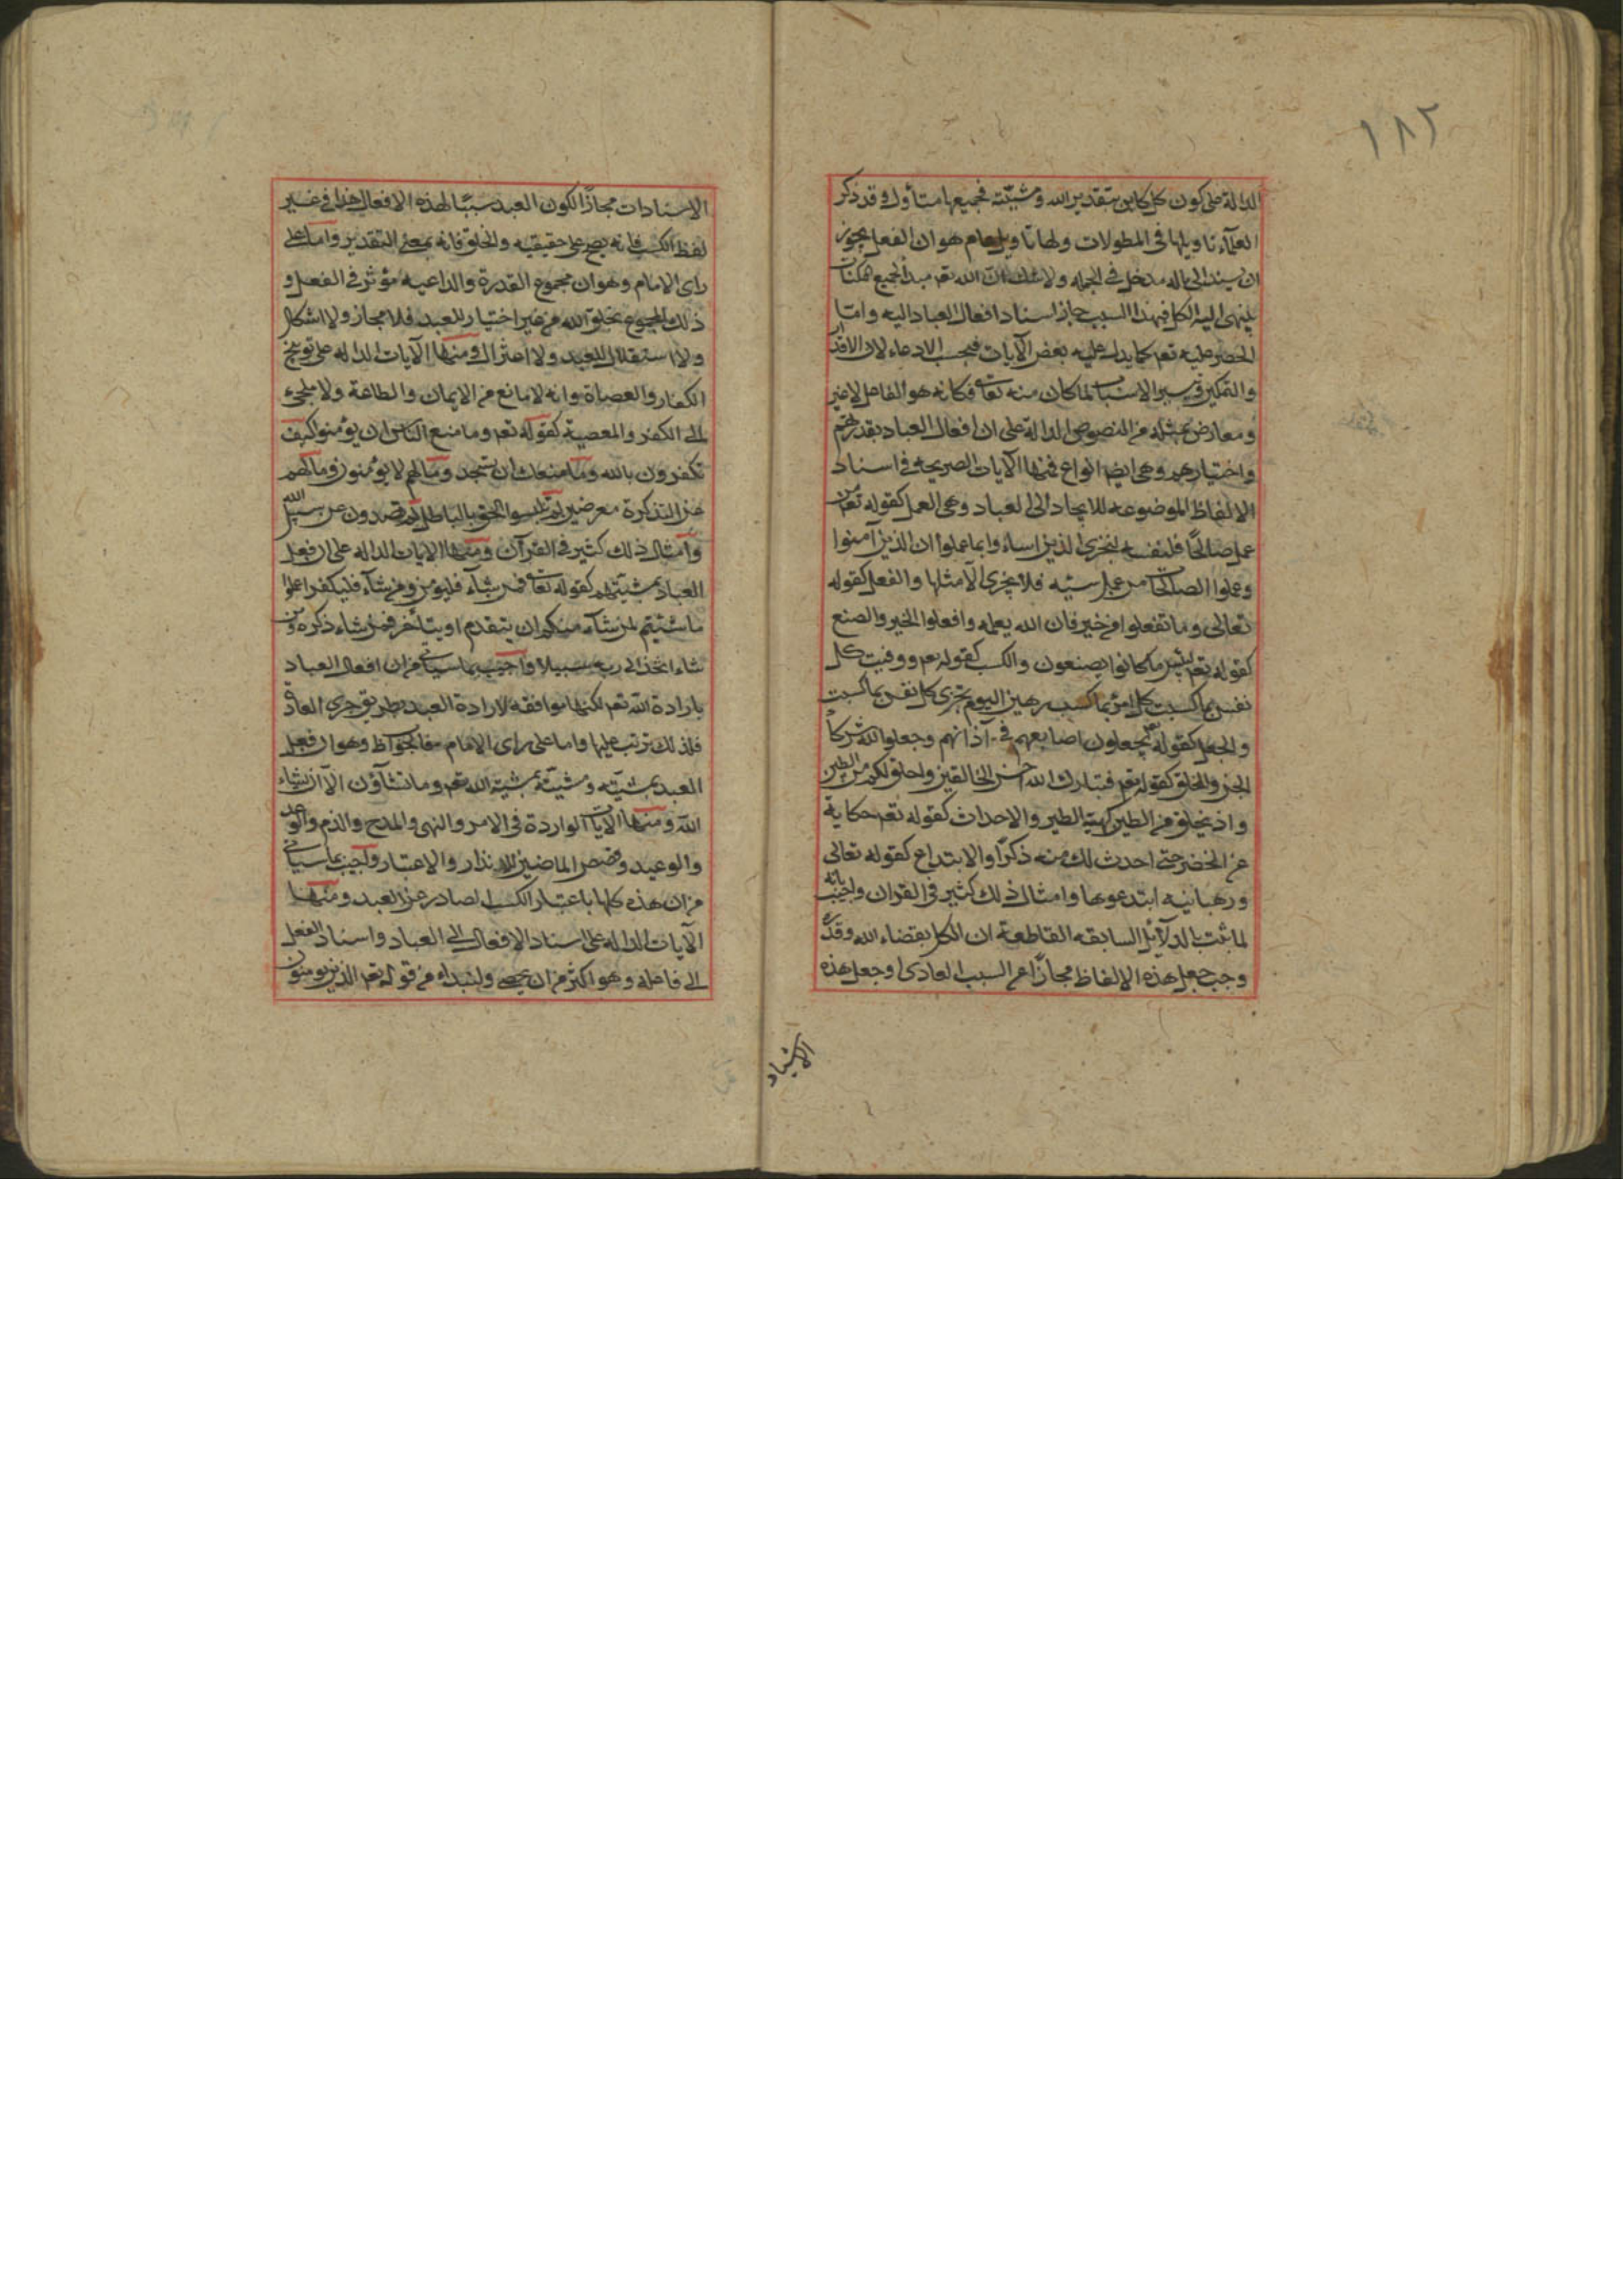 ١٨٢
الدالة على كون كل كاين بتقدير الله ومشيّته فجميعها متأول وقد ذكر
العلمآء تاويلها فى المطولات ولها تاويل عام هو ان الفعل يجوز
ان يسند الى ماله مدخل فى الجمله ولا شك ان الله تعم مبدأ لجميع الممكنات
ينهى اليه الكل فبهذا السبب جاز اسناد افعال العباد اليه واما
الحصر عليه تعم كما يدل عليه بعض الآيات فبحسب الادعاء لان الاقدار
والتمكين وتيسير الاسباب لما كان منه تعالى فكانه هو الفاعل لا غير
ومعارض بمثله من النصوص الدالة على ان افعال العباد بقدرتهم
واختيارهم وهى ايضا انواع فمنها الآيات الصريحة فى اسناد
الالفاظ الموضوعه للايجاد الى العباد وهى العمل كقوله تعم من
عمل صالحًا فلنفسه ليجزى الذين اساءوا بما عملوا ان الذين آمنوا
وعملوا الصالحات من عمل سيئه فلا يجزى الا مثلها والفعل كقوله
تعالى وما تفعلوا من خير فان الله يعلمه وافعلوا الخير والصنع
كقوله تعم لبئس ما كانوا يصنعون والكسب كقوله تعم ووفيت كل
نفس ما كسبت كل امرئ بما كسب رهين اليوم تجزى كل نفس بما كسبت
والجعل كقوله تعم يجعلون اصابعهم فى آذانهم وجعلوا لله شركاء
الجن والخلق كقوله تعم فتبارك الله احسن الخالقين واخلق لكم من الطين
واذ يخلق من الطين كهيئة الطير والاحداث كقوله تعم حكاية
عن الخضر حتى احدث لك منه ذكرًا والابتداع كقوله تعالى
ورهبانيه ابتدعوها وامثال ذلك كثير فى القران واجيب بانه
لما ثبت بالدلآئل السابقه القاطعة ان الكل بقضاء الله وقدره
وجب جعل هذه الالفاظ مجازًا عن السبب العادى او جعل هذه
الاسناد
الاسنادات مجازًا لكون العبد سببًا لهذه الافعال هذا فى غير
لفظ الكسب فانه يصح على حقيقته والخلق فانه بمعنى التقدير واما على
راى الامام وهو ان مجموع القدرة والداعيه مؤثر فى الفعل و
ذلك المجموع بخلق الله من غير اختيار للعبد فلا مجاز ولا اشكال
ولا استقلال للعبد ولا اعتزال ومنها الآيات الداله على توبيخ
الكفار والعصاة وانه لا مانع من الايمان والطاعة ولا ملجئ
الى الكفر والمعصية كقوله تعم وما منع الناس ان يؤمنوا كيف
تكفرون بالله وما منعك ان تسجد وما لهم لا يؤمنون فما لهم
عن التذكرة معرضين لم تلبسوا الحق بالباطل لم تصدون عن سبيل الله
وامثال ذلك كثير فى القرآن ومنها الايات الداله على ان فعل
العباد بمشيتهم كقوله تعالى فمن شآء فليؤمن ومن شآء فليكفر اعملوا
ما شئتم لمن شآء منكم ان يتقدم او يتأخر فمن شاء ذكره فمن
شاء اتخذ الى ربه سبيلا واجيب بما سياتى من ان افعال العباد
بارادة الله تعم لكنها موافقه لارادة العبد بطريق جرى العادة
فلذلك ترتب عليها واما على راى الامام فالجواب ظ وهو ان فعل
العبد بمشيّته ومشيّته بمشية الله تعم وما تشآؤن الا ان يشاء
الله ومنها الآيات الواردة فى الامر والنهى والمدح والذم والوعد
والوعيد وقصص الماضين للانذار والاعتبار واجيب بما سياتى
من ان هذه كلها باعتبار الكسب الصادر عن العبد ومنها
الآيات الداله على اسناد الافعال الى العباد واسناد الفعل
الى فاعله وهو اكثر من ان يحصى ولنبداء من قوله تعم الذين يؤمنون